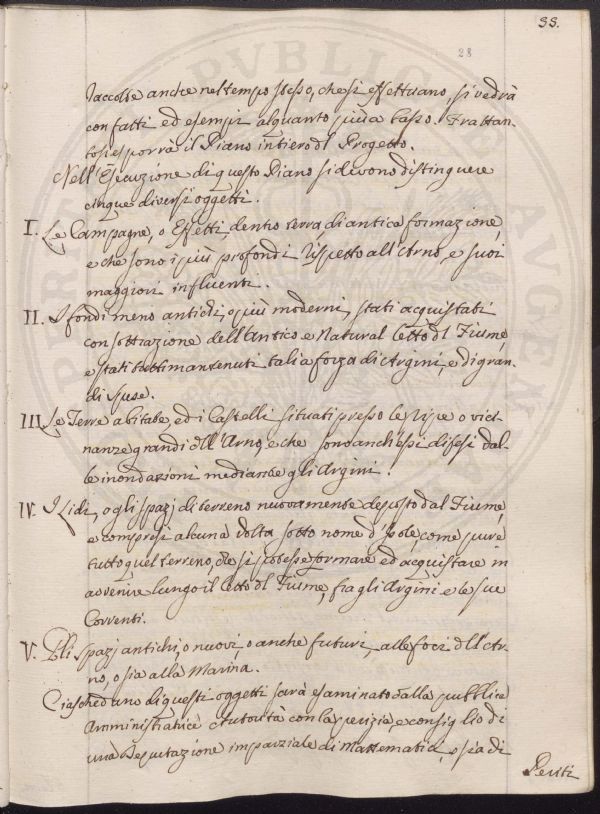 33.
28
raccolse anche nel tempo stesso, che si effettuano, si vedrà
con fatti ed esempi alquanto più a basso. Frattan-
to si esporrà il Piano intiero dl Progetto.
Nell'Esecuzione di questo Piano si devono distinguere
cinque diversi oggetti.
I. Le Campagne, o Effetti, dentro terra di antica formazione,
e che sono i più profondi rispetto all'Arno, e suoi
maggiori influenti.
II. I fondi meno antichi, o più moderni, stati acquistati
con sottrazione dell'Antico e Natural Letto dl Fiume,
e stati mantenuti tali a forza di Argini, e di gran-
di spese.
III. Le Terre abitate, ed i Castelli situati presso le ripe o vici-
nanze grandi dll'Arno, e che sono anch'essi difesi dal-
le inondazioni mediante gli Argini.
IV. I Lidi, o gli spazj di terreno nuovamente deposto dal Fiume,
e compresi alcuna volta sotto nome d'Isole, come pure
tutto quel terreno, che si potesse formare ed acquistare in
avvenire lungo il Letto dl Fiume, fra gli Argini e le sue
Correnti.
V. Gli spazj antichi, o nuovi o anche futuri, alle foci dll'Ar-
no, o sia alla Marina.
Ciascheduno di questi oggetti sarà esaminato dalla pubblica
Amministratrice Autorità con la perizia, e consiglio di
una Deputazione imparziale di Mattematici, o sia di
Periti